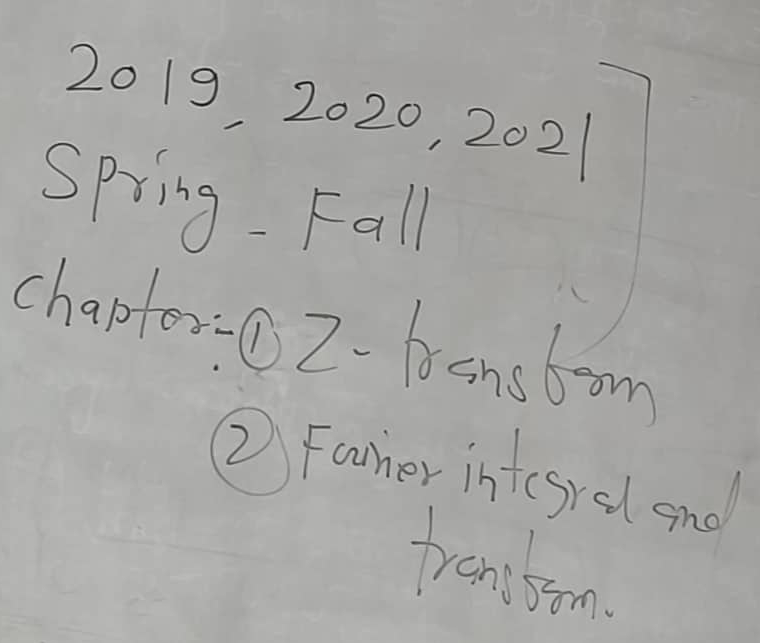 2019, 2020, 2021
Spring - Fall
Chapter:- ① Z-transform
② Fourier integral and
transform.